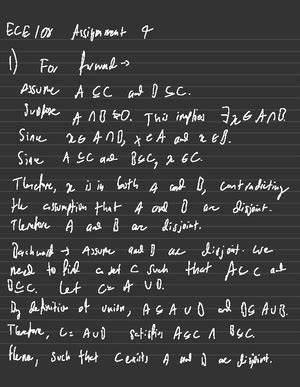 ECE 108 Assignment 4
1) For forward →
Assume A ⊆ C and B ⊆ C.
Suppose A ∩ B ≠ ∅. This implies ∃x ∈ A ∩ B.
Since x ∈ A ∩ B, x ∈ A and x ∈ B.
Since A ⊆ C and B ⊆ C, x ∈ C.
Therefore, x is in both A and B, contradicting
the assumption that A and B are disjoint.
Therefore A and B are disjoint.
Backward → Assume and B are disjoint. We
need to find a set C such that A ⊆ C and
B ⊆ C. Let C = A ∪ B.
By definition of union, A ⊆ A ∪ B and B ⊆ A ∪ B.
Therefore, C = A ∪ B satisfies A ⊆ C ∧ B ⊆ C.
Hence, such that C exists, A and B are disjoint.